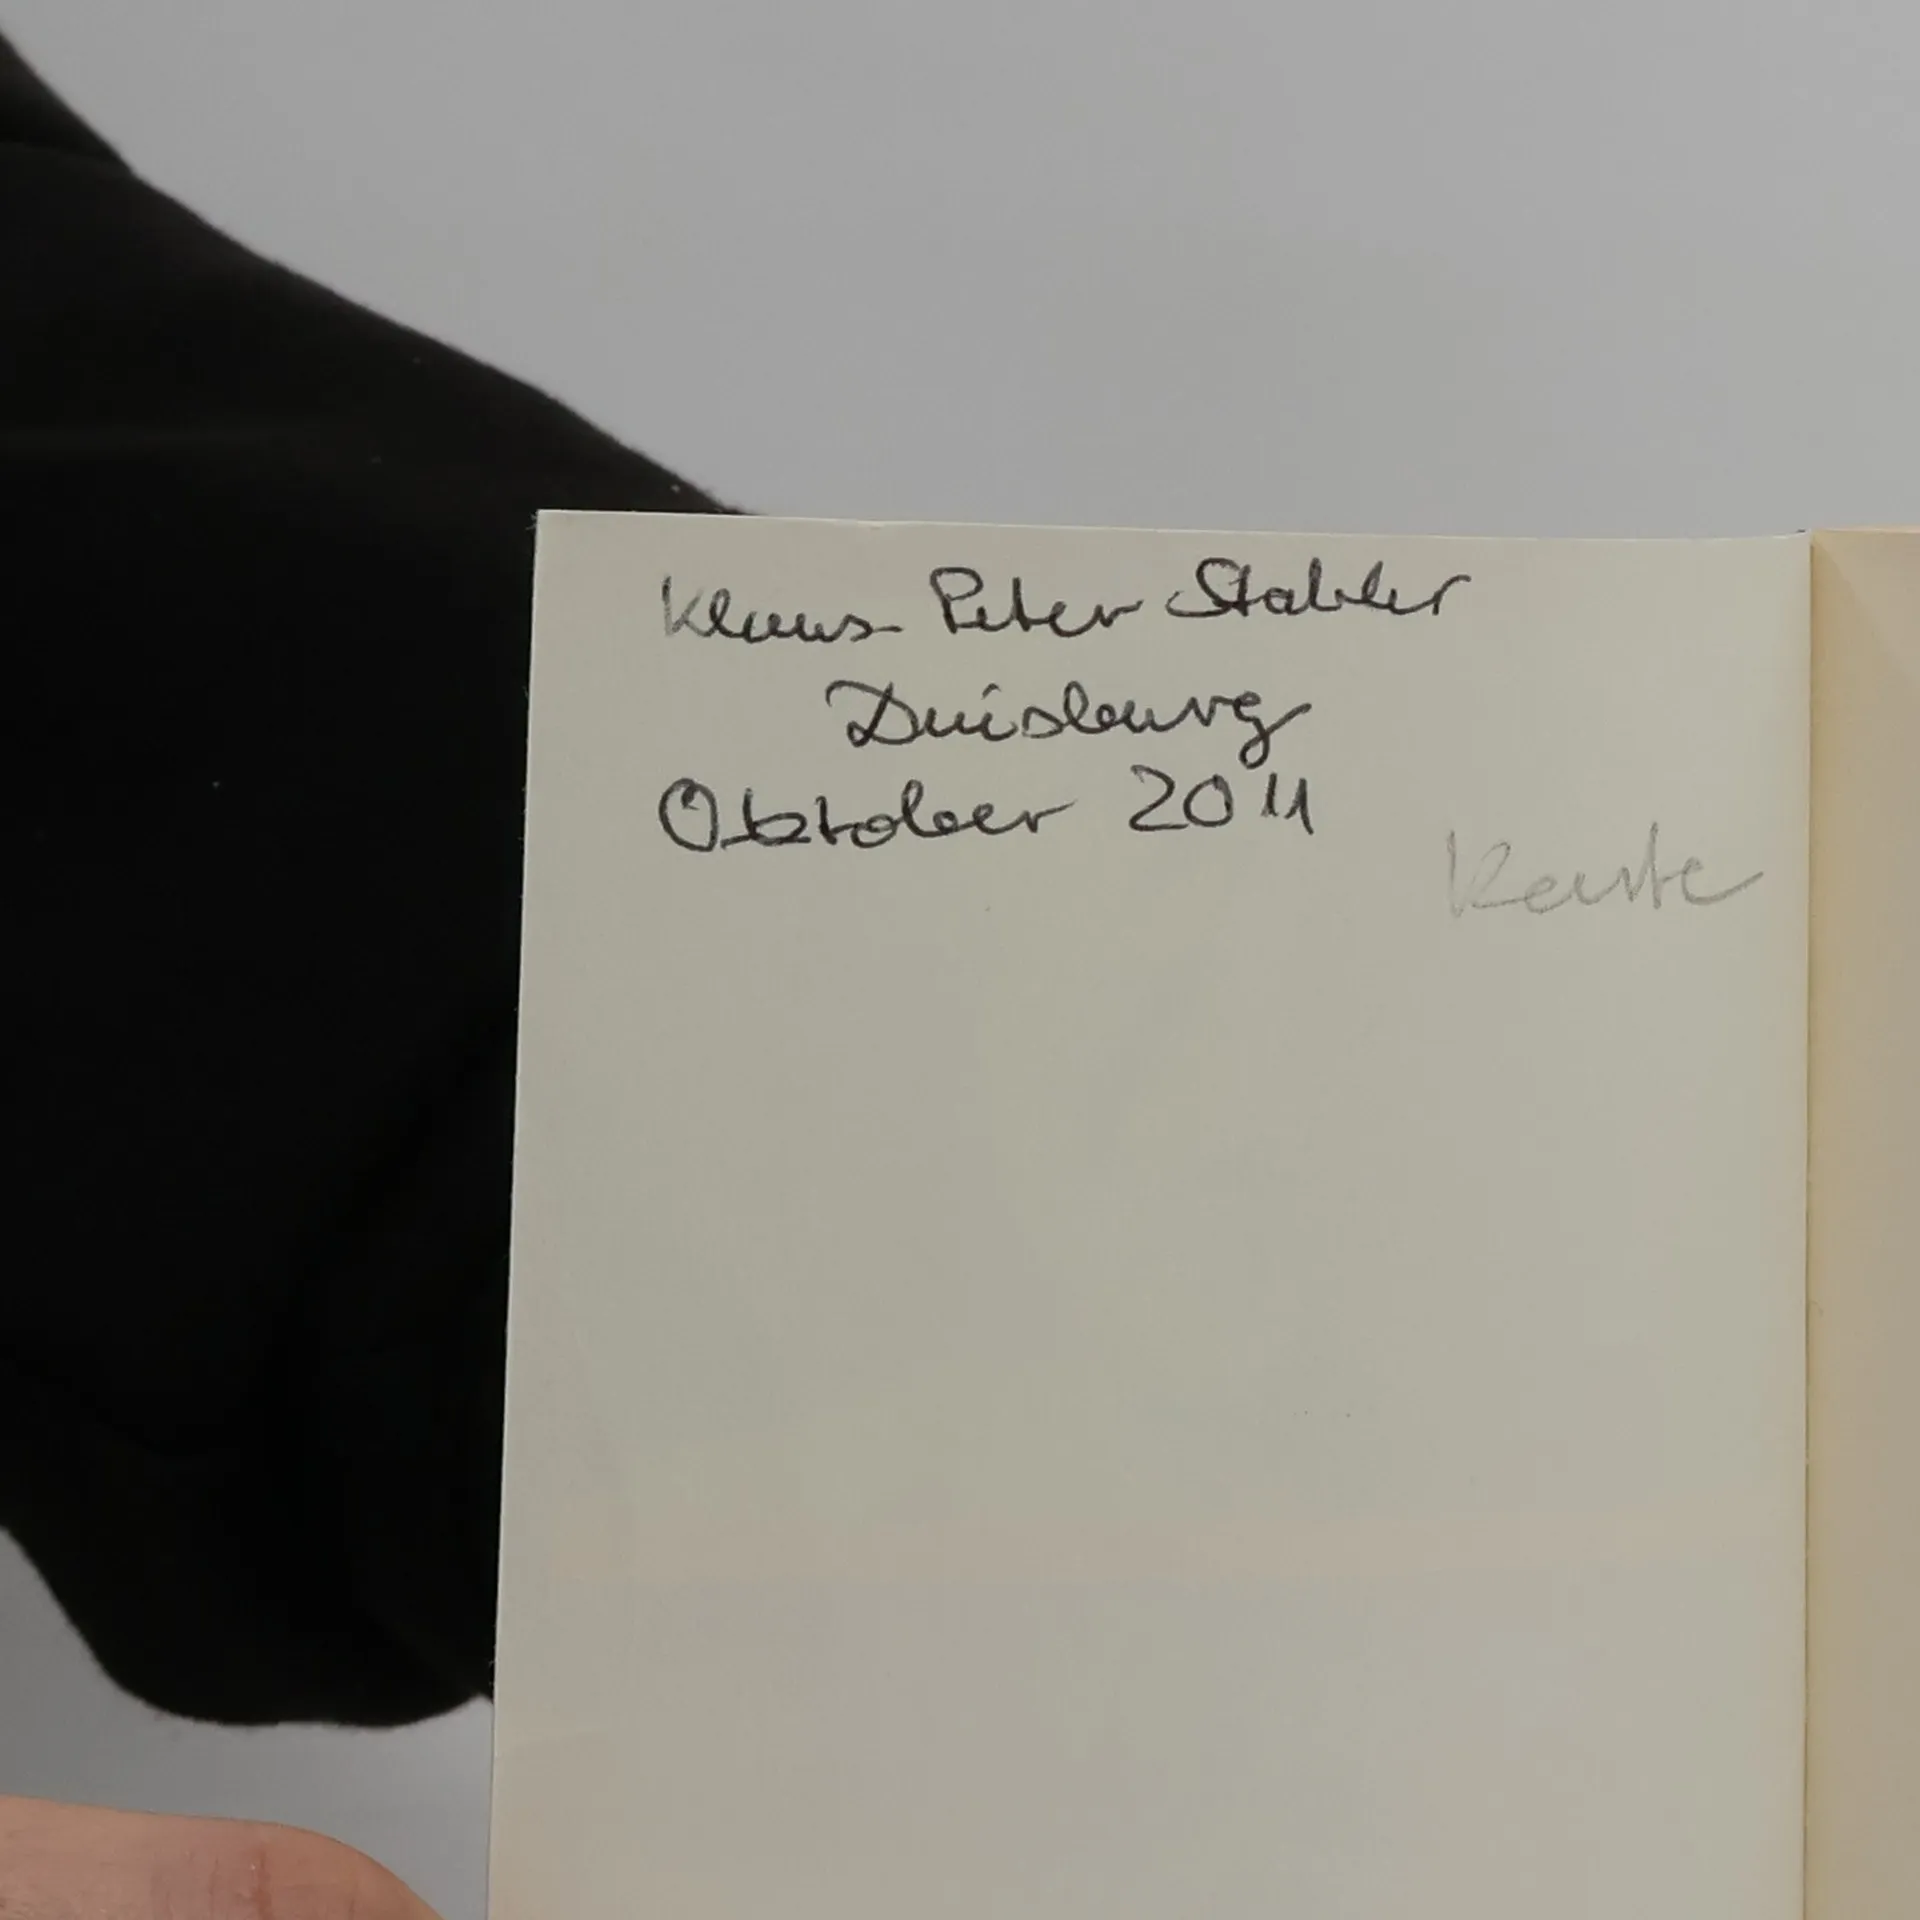 Klaus Peter Stahler
Duisburg
Oktober 2011